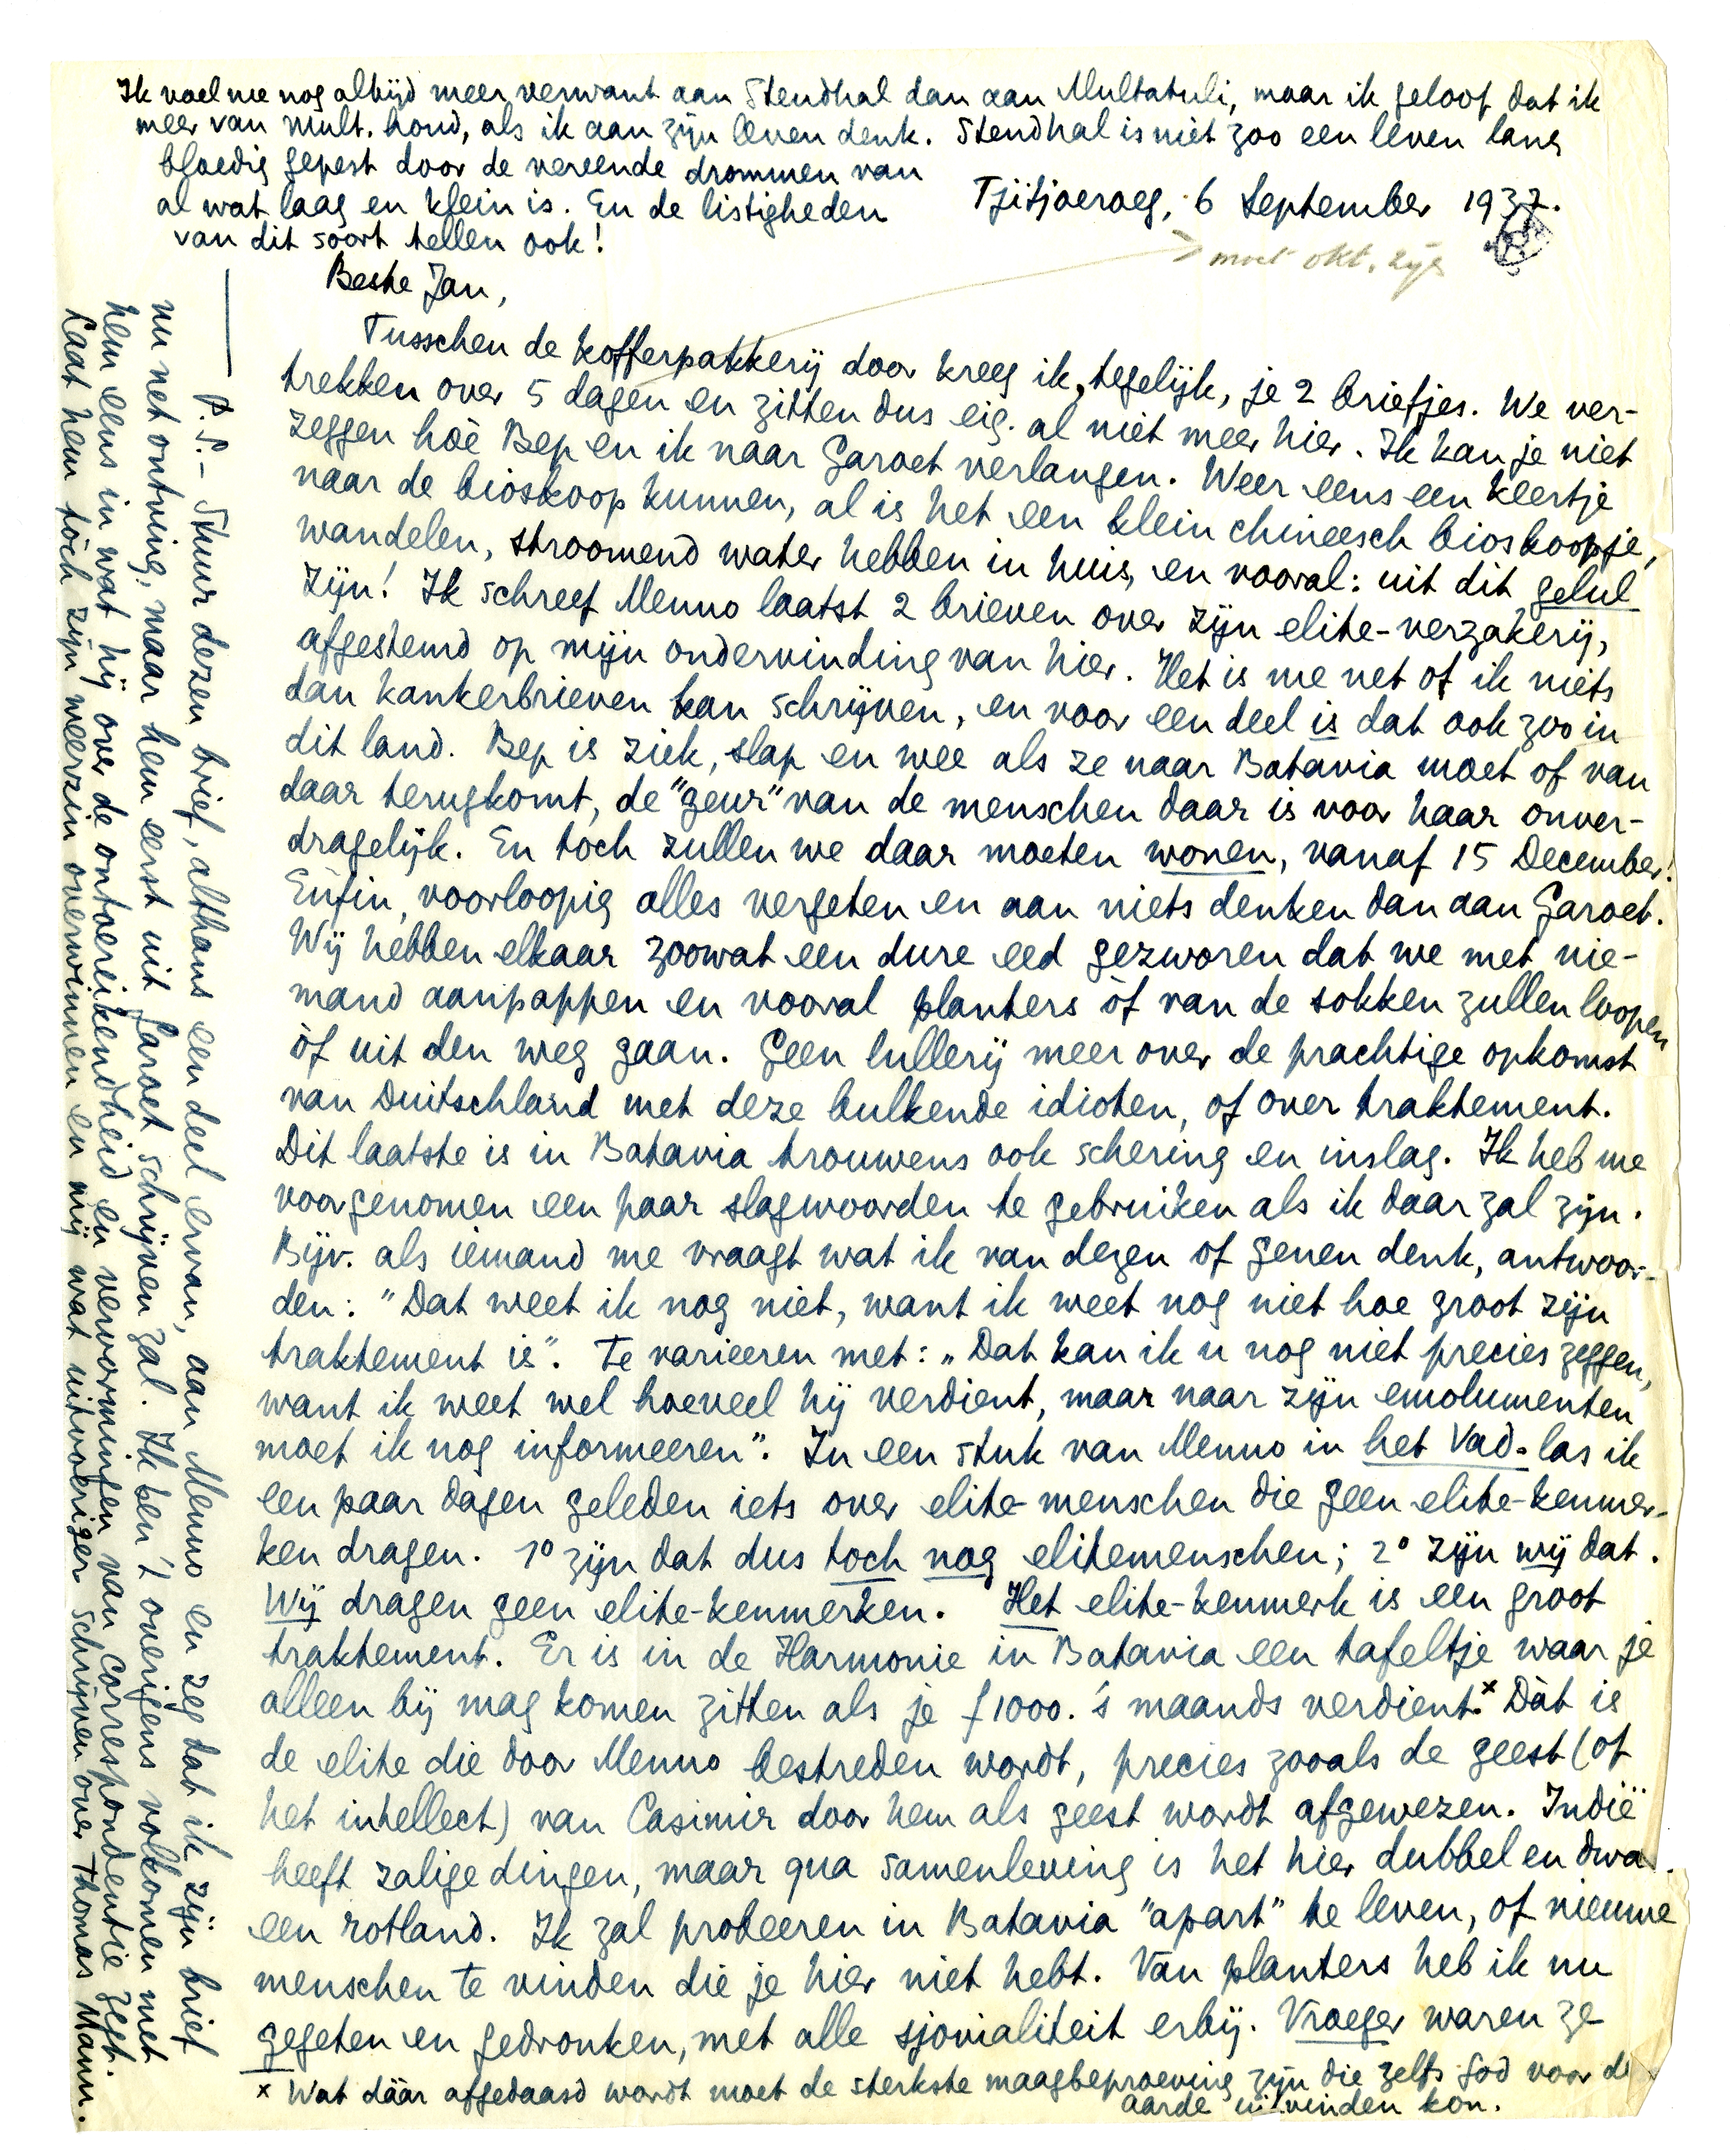 Ik voel me nog altijd meer verwant aan Stendhal dan aan Multatuli, maar ik geloof dat ik
meer van Mult. houd, als ik aan zijn leven denk. Stendhal is niet zoo een leven lang
bloedig gepest door de vereende drommen van
al wat laag en klein is. En de listigheden
van dit soort tellen ook!
Tjitjoeroeg, 6 September 1937.
moet okt. zijn
Beste Jan,
Tusschen de kofferpakkerij door kreeg ik, tegelijk, je 2 briefjes. We ver-
trekken over 5 dagen en zitten dus eig. al niet meer hier. Ik kan je niet
zeggen hoè Bep en ik naar Garoet verlangen. Weer eens een keertje
naar de bioskoop kunnen, al is het een klein chineesch bioskoopje,
wandelen, stroomend water hebben in huis, en vooral: uit dit gelul
zijn! Ik schreef Menno laatst 2 brieven over zijn elite-verzakerij,
afgestemd op mijn ondervinding van hier. Het is me net of ik niets
dan kankerbrieven kan schrijven, en voor een deel is dat ook zoo in
dit land. Bep is ziek, slap en wee als ze naar Batavia moet of van
daar terugkomt, de "geur" van de menschen daar is voor haar onver-
dragelijk. En toch zullen we daar moeten wonen, vanaf 15 December!
Enfin, voorloopig alles vergeten en aan niets denken dan aan Garoet.
Wij hebben elkaar zoowat een dure eed gezworen dat we met nie-
mand aanpappen en vooral planters òf van de sokken zullen loopen
òf uit den weg gaan. Geen lullerij meer over de prachtige opkomst
van Duitschland met deze bulkende idioten, of over traktement.
Dit laatste is in Batavia trouwens ook schering en inslag. Ik heb me
voorgenomen een paar slagwoorden te gebruiken als ik daar zal zijn.
Bijv. als iemand me vraagt wat ik van dezen of genen denk, antwoor-
den: "Dat weet ik nog niet, want ik weet nog niet hoe groot zijn
traktement is". Te varieeren met: „Dat kan ik u nog niet precies zeggen,
want ik weet wel hoeveel hij verdient, maar naar zijn emolumenten
moet ik nog informeeren". In een stuk van Menno in het Vad. las ik
een paar dagen geleden iets over elite-menschen die geen elite-kenmer-
ken dragen. 1° zijn dat dus toch nog elitemenschen; 2° zijn wij dat.
Wij dragen geen elite-kenmerken. Het elite-kenmerk is een groot
traktement. Er is in de Harmonie in Batavia een tafeltje waar je
alleen bij mag komen zitten als je f 1000. 's maands verdient.x Dàt is
de elite die door Menno bestreden wordt, precies zooals de geest (of
het intellect) van Casimir door hem als geest wordt afgewezen. Indië
heeft zalige dingen, maar qua samenleving is het hier dubbel en dwa
een rotland. Ik zal probeeren in Batavia "apart" te leven, of nieuwe
menschen te vinden die je hier niet hebt. Van planters heb ik nu
gegeten en gedronken, met alle sjovialiteit erbij. Vroeger waren ze
x Wat dáár afgedaasd wordt moet de sterkste maagbeproeving zijn die zelfs God voor de
aarde uitvinden kon.
P.S. - Stuur dezen brief, althans een deel ervan, aan Menno en zeg dat ik zijn brief
nu net ontving, maar hem eerst uit Garoet schrijven zal. Ik ben 't overigens volkomen met
hem eens in wat hij over de ontoereikendheid en vervormingen van correspondentie zegt.
Laat hem tòch zijn weerzin overwinnen en mij wat uitvoeriger schrijven over Thomas Mann.